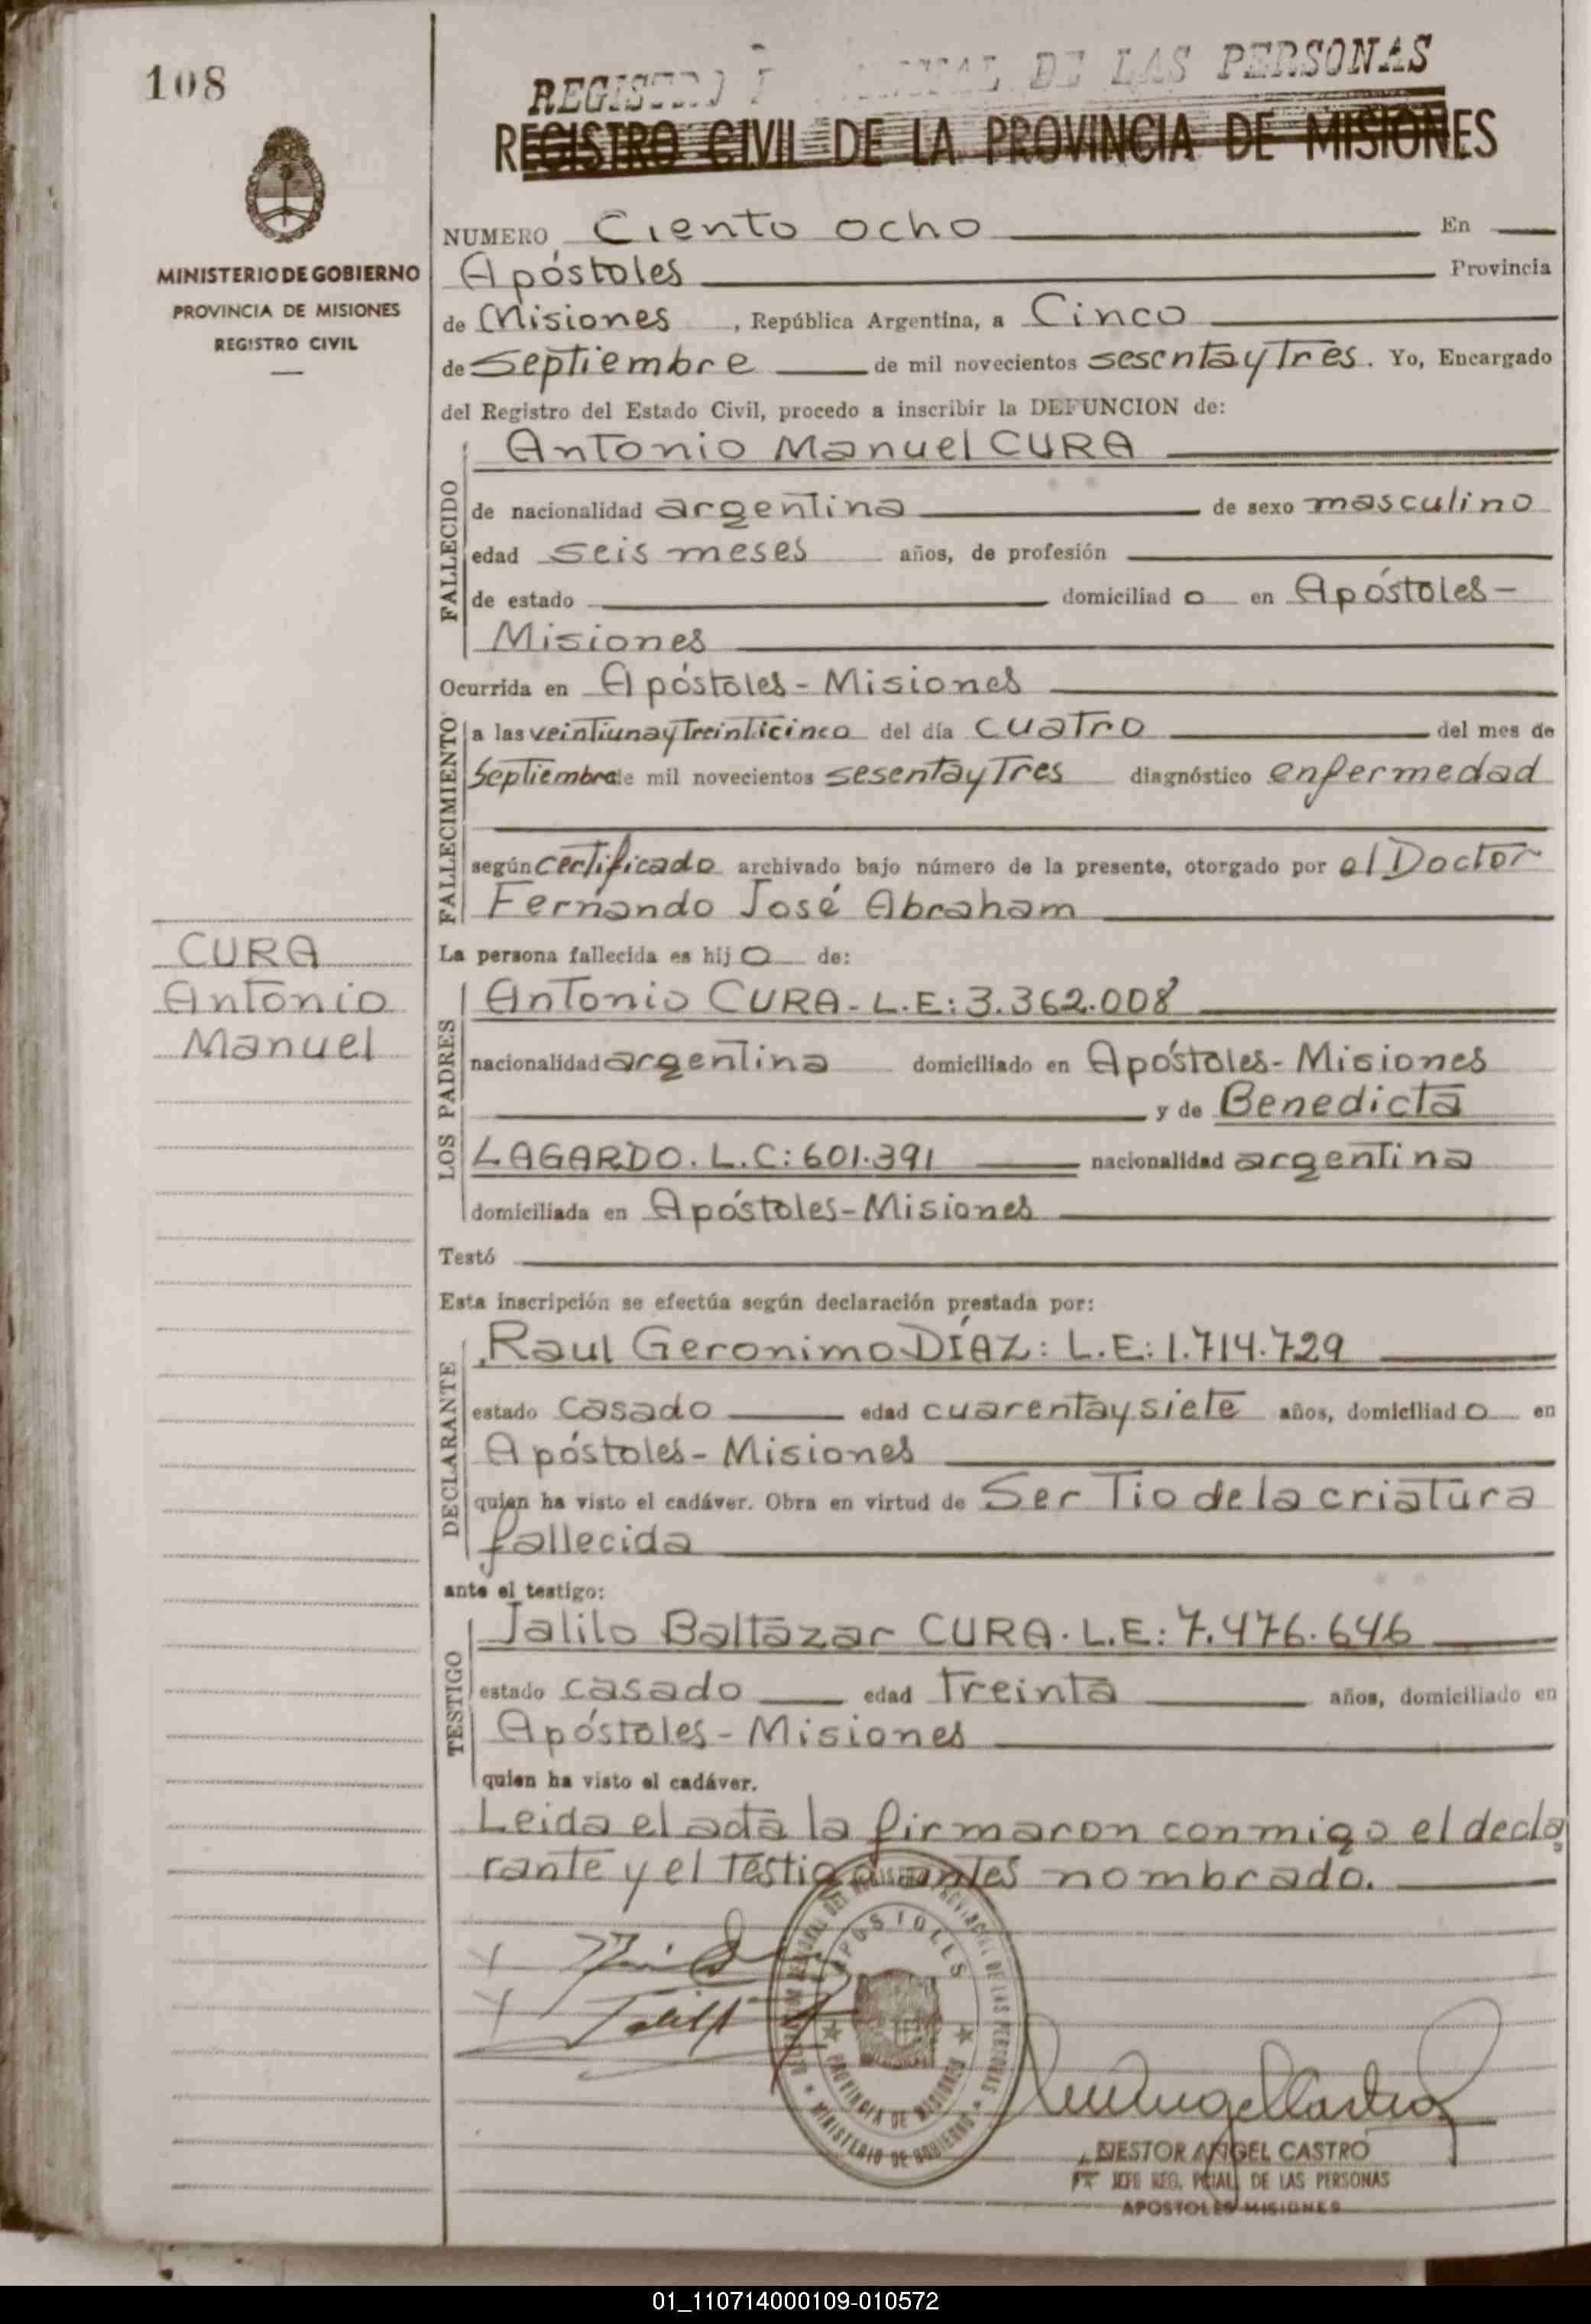 108
MINISTERIO DE GOBIERNO
PROVINCIA DE MISIONES
REGISTRO CIVIL
REGISTRO DE LAS PERSONAS
REGISTRO CIVIL DE LA PROVINCIA DE MISIONES
NUMERO Ciento ocho En
Apóstoles Provincia
de Misiones, República Argentina, a Cinco
de Septiembre de mil novecientos sesentaytres. Yo, Encargado
del Registro del Estado Civil, procedo a inscribir la DEFUNCION de:
FALLECIDO
Antonio Manuel CURA
de nacionalidad argentina de sexo masculino
edad seis meses años, de profesión
de estado domiciliad o en Apóstoles-
Misiones
Ocurrida en Apóstoles - Misiones
FALLECIMIENTO
a las veintiunaytreinticinco del día cuatro del mes de
Septiembre de mil novecientos sesentaytres diagnóstico enfermedad
según certificado archivado bajo número de la presente, otorgado por el Doctor
Fernando José Abraham
CURA
Antonio
Manuel
La persona fallecida es hijo de:
LOS PADRES
Antonio CURA - L.E: 3.362.008
nacionalidad argentina domiciliado en Apóstoles - Misiones
y de Benedicta
LAGARDO. L.C: 601.391 nacionalidad argentina
domiciliada en Apóstoles-Misiones
Testó
Esta inscripción se efectúa según declaración prestada por:
DECLARANTE
Raul Geronimo DÍAZ: L.E: 1.714.729
estado casado edad cuarentaysiete años, domiciliad o en
Apóstoles - Misiones
quien ha visto el cadáver. Obra en virtud de Ser Tio de la criatura
fallecida
ante el testigo:
TESTIGO
Jalilo Baltazar CURA. L.E: 7.476.646
estado casado edad treinta años, domiciliado en
Apóstoles - Misiones
quien ha visto el cadáver.
Leida el acta la firmaron conmigo el decla
rante y el testigo antes nombrado.
APOSTOLES
PROVINCIA DE MISIONES
MINISTERIO DE GOBIERNO
NESTOR ANGEL CASTRO
JEFE REG. PCIAL. DE LAS PERSONAS
APOSTOLES MISIONES
01_110714000109-010572